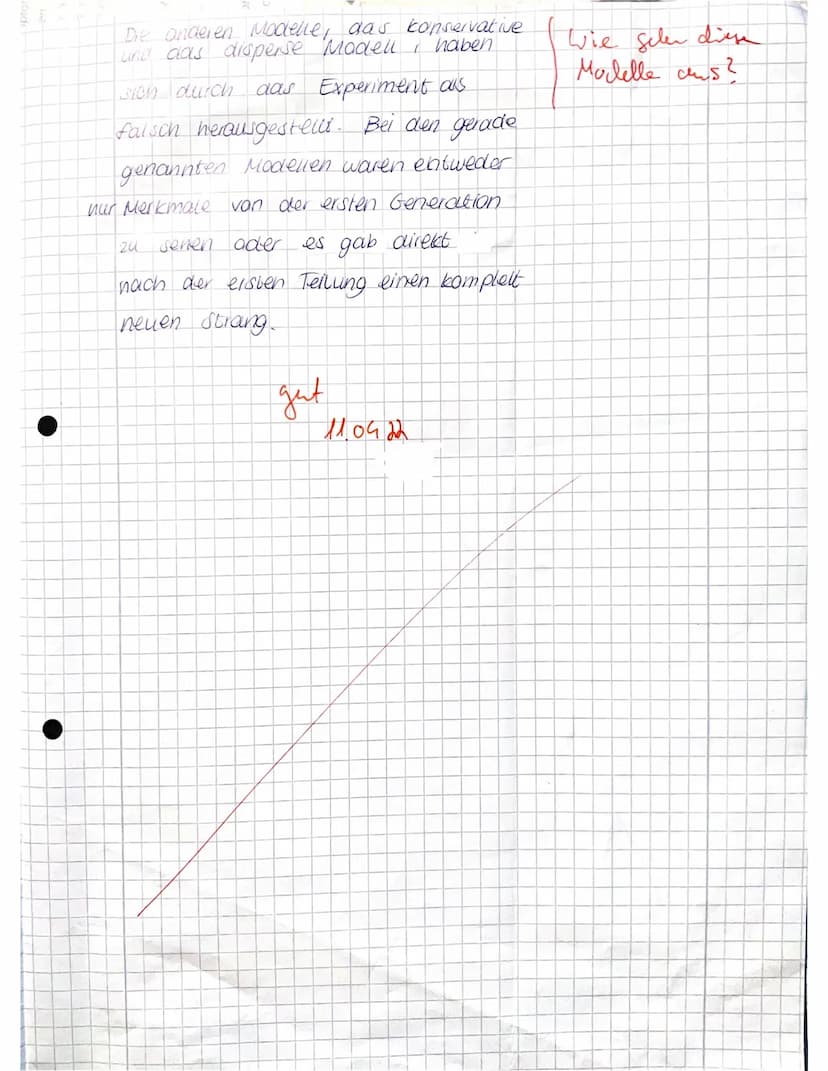 Die anderen Modelle, das konservative
und das disperse Modell, haben
sich durch das Experiment als
falsch herausgestellt. Bei den gerade
genannten Modellen waren entweder
nur Merkmale von der ersten Generation
zu sehen oder es gab direkt
nach der ersten Teilung einen komplett
neuen Strang.
Wie sehen diese
Modelle aus?
gut
11.04.22